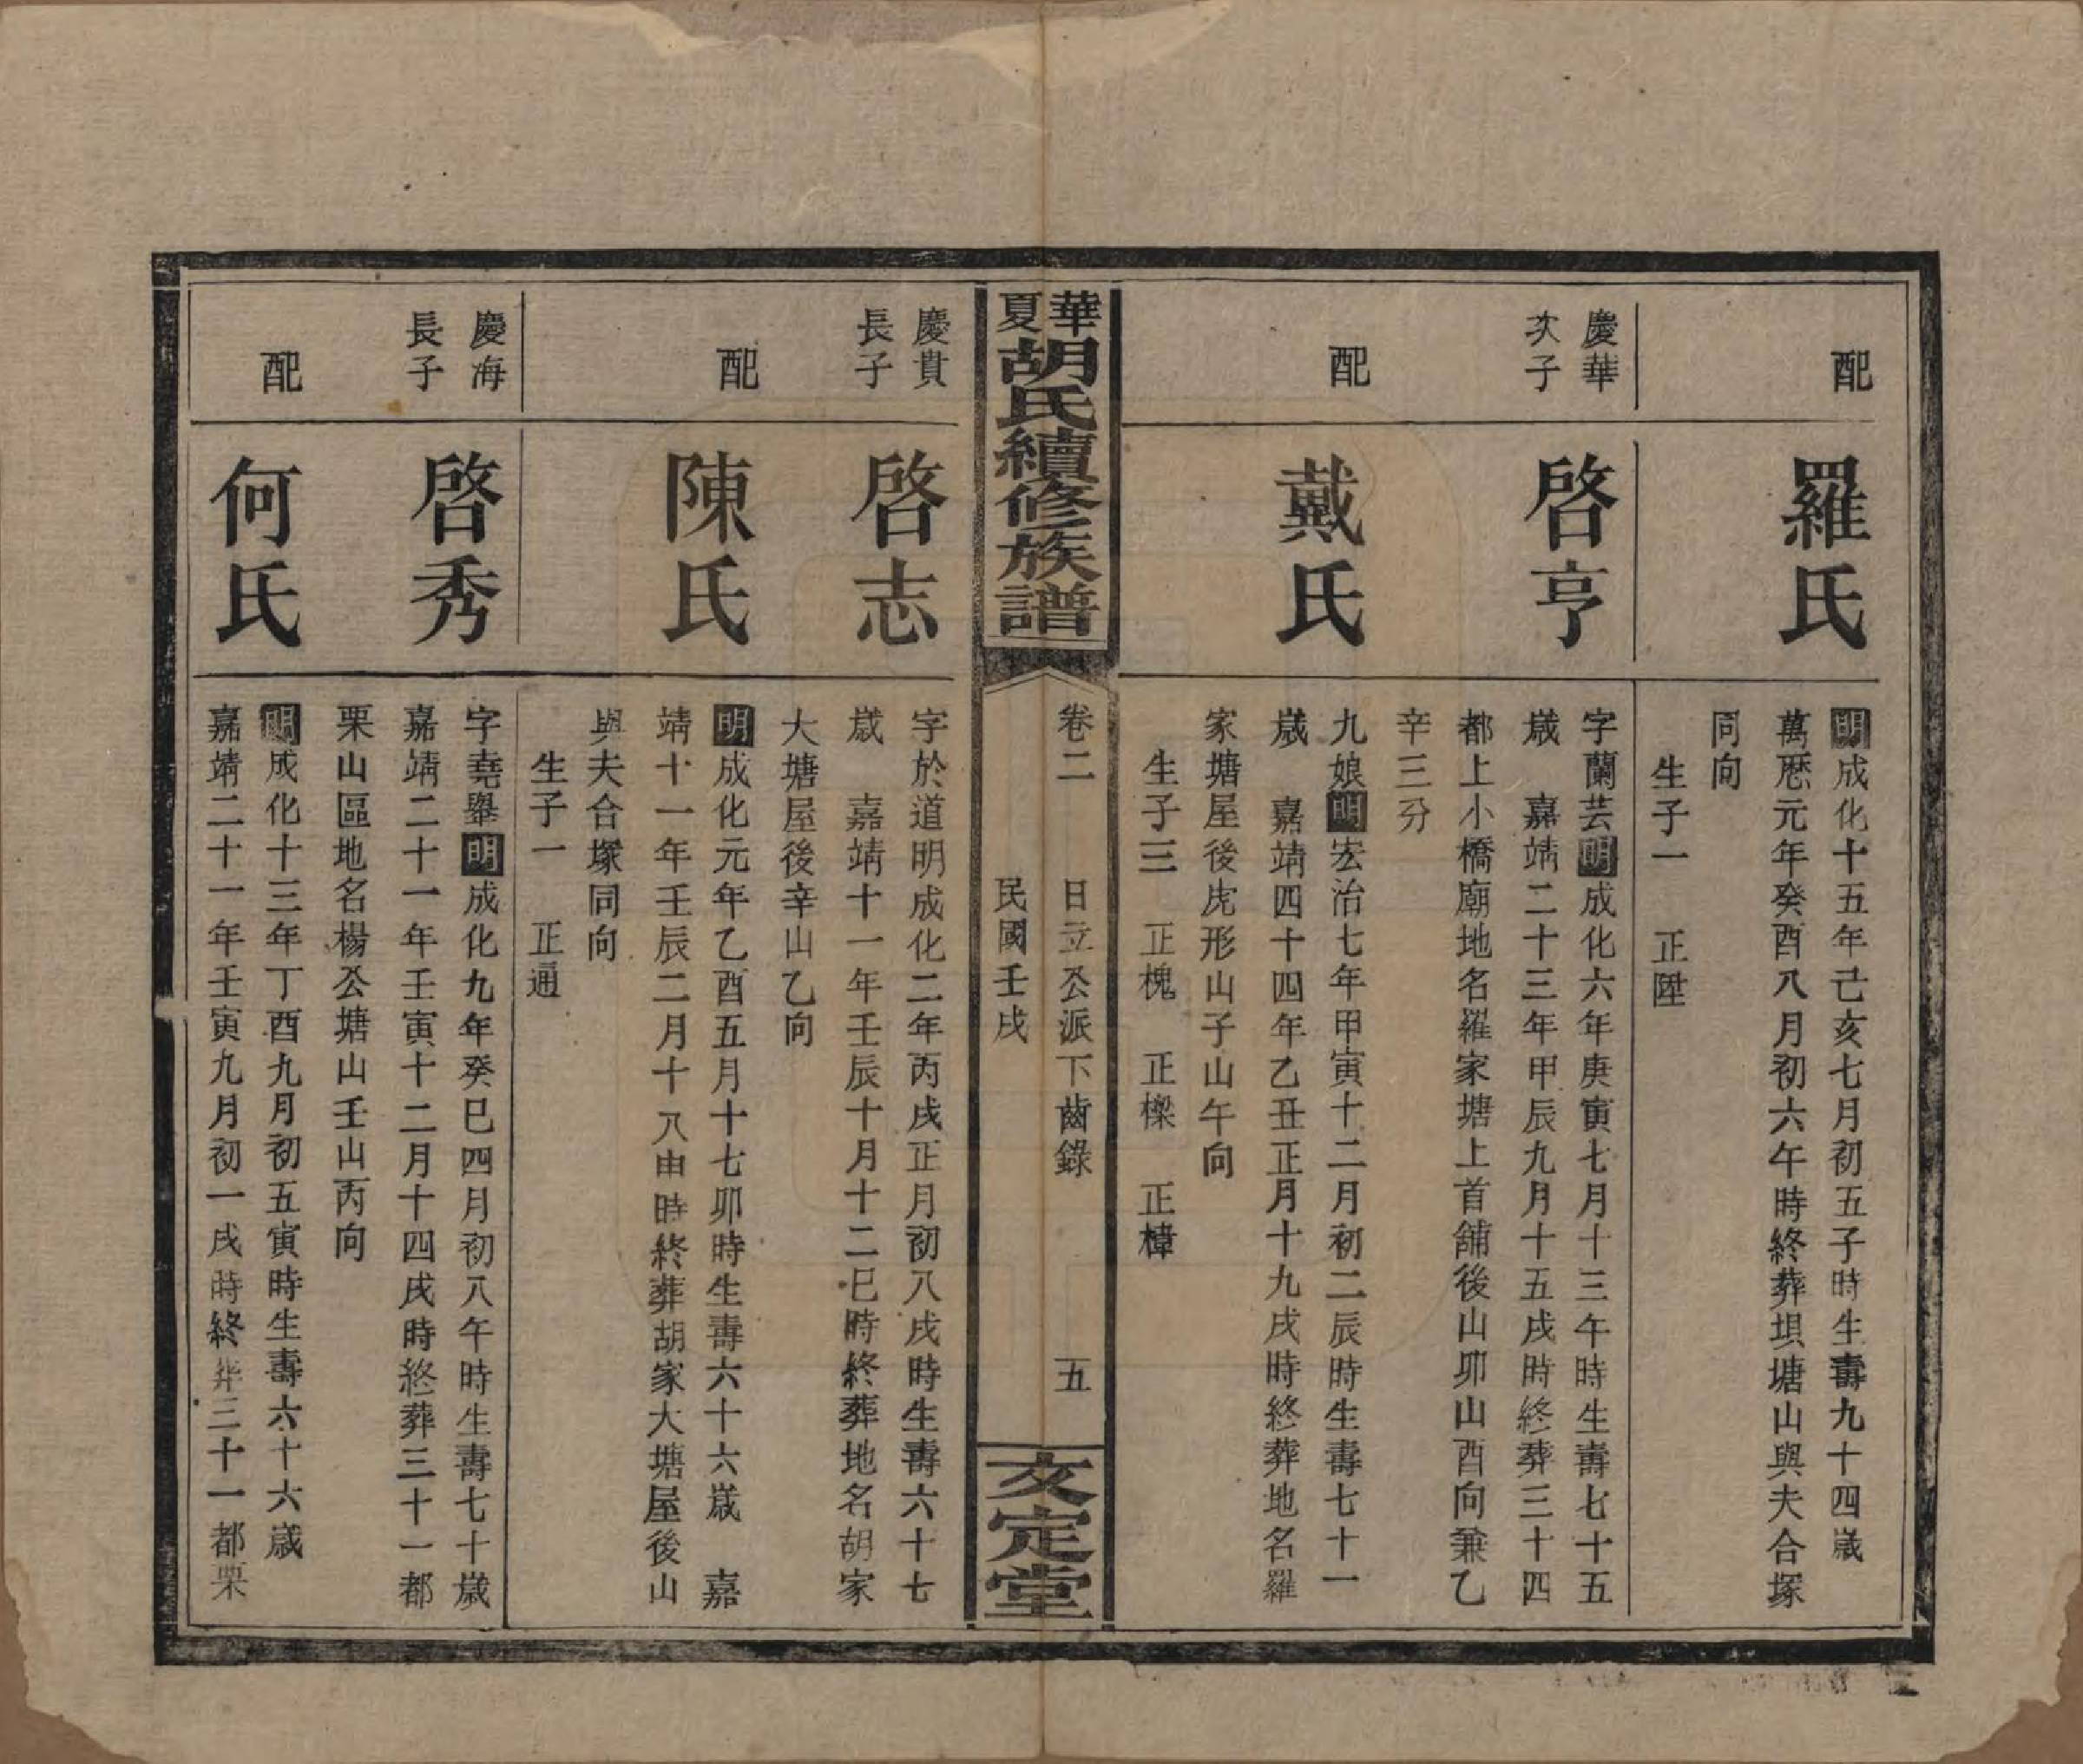 配
羅氏
明成化十五年己亥七月初五子時生壽九十四歲
萬厯元年癸酉八月初六午時終葬垻塘山與夫合塚
同向
生子一　正陞
慶華
次子
啓亨
字蘭芸明成化六年庚寅七月十三午時生壽七十五
歲　嘉靖二十三年甲辰九月十五戌時終葬三十四
都上小橋廟地名羅家塘上首舖後山卯山酉向兼乙
辛三分
配
戴氏
九娘明宏治七年甲寅十二月初二辰時生壽七十一
歲　嘉靖四十四年乙丑正月十九戌時終葬地名羅
家塘屋後虎形山子山午向
生子三　正槐　正樑　正樟
華夏胡氏續修族譜
卷二　日立公派下齒錄　五
民國壬戌
文定堂
慶貴
長子
啓志
字於道明成化二年丙戌正月初八戌時生壽六十七
歲　嘉靖十一年壬辰十月十二巳時終葬地名胡家
大塘屋後辛山乙向
配
陳氏
明成化元年乙酉五月十七卯時生壽六十六歲　嘉
靖十一年壬辰二月十八由時終葬胡家大塘屋後山
與夫合塚同向
生子一　正通
慶海
長子
啓秀
字堯舉明成化九年癸巳四月初八午時生壽七十歲
嘉靖二十一年壬寅十二月十四戌時終葬三十一都
栗山區地名楊公塘山壬山丙向
配
何氏
明成化十三年丁酉九月初五寅時生壽六十六歲
嘉靖二十一年壬寅九月初一戌時終葬三十一都栗